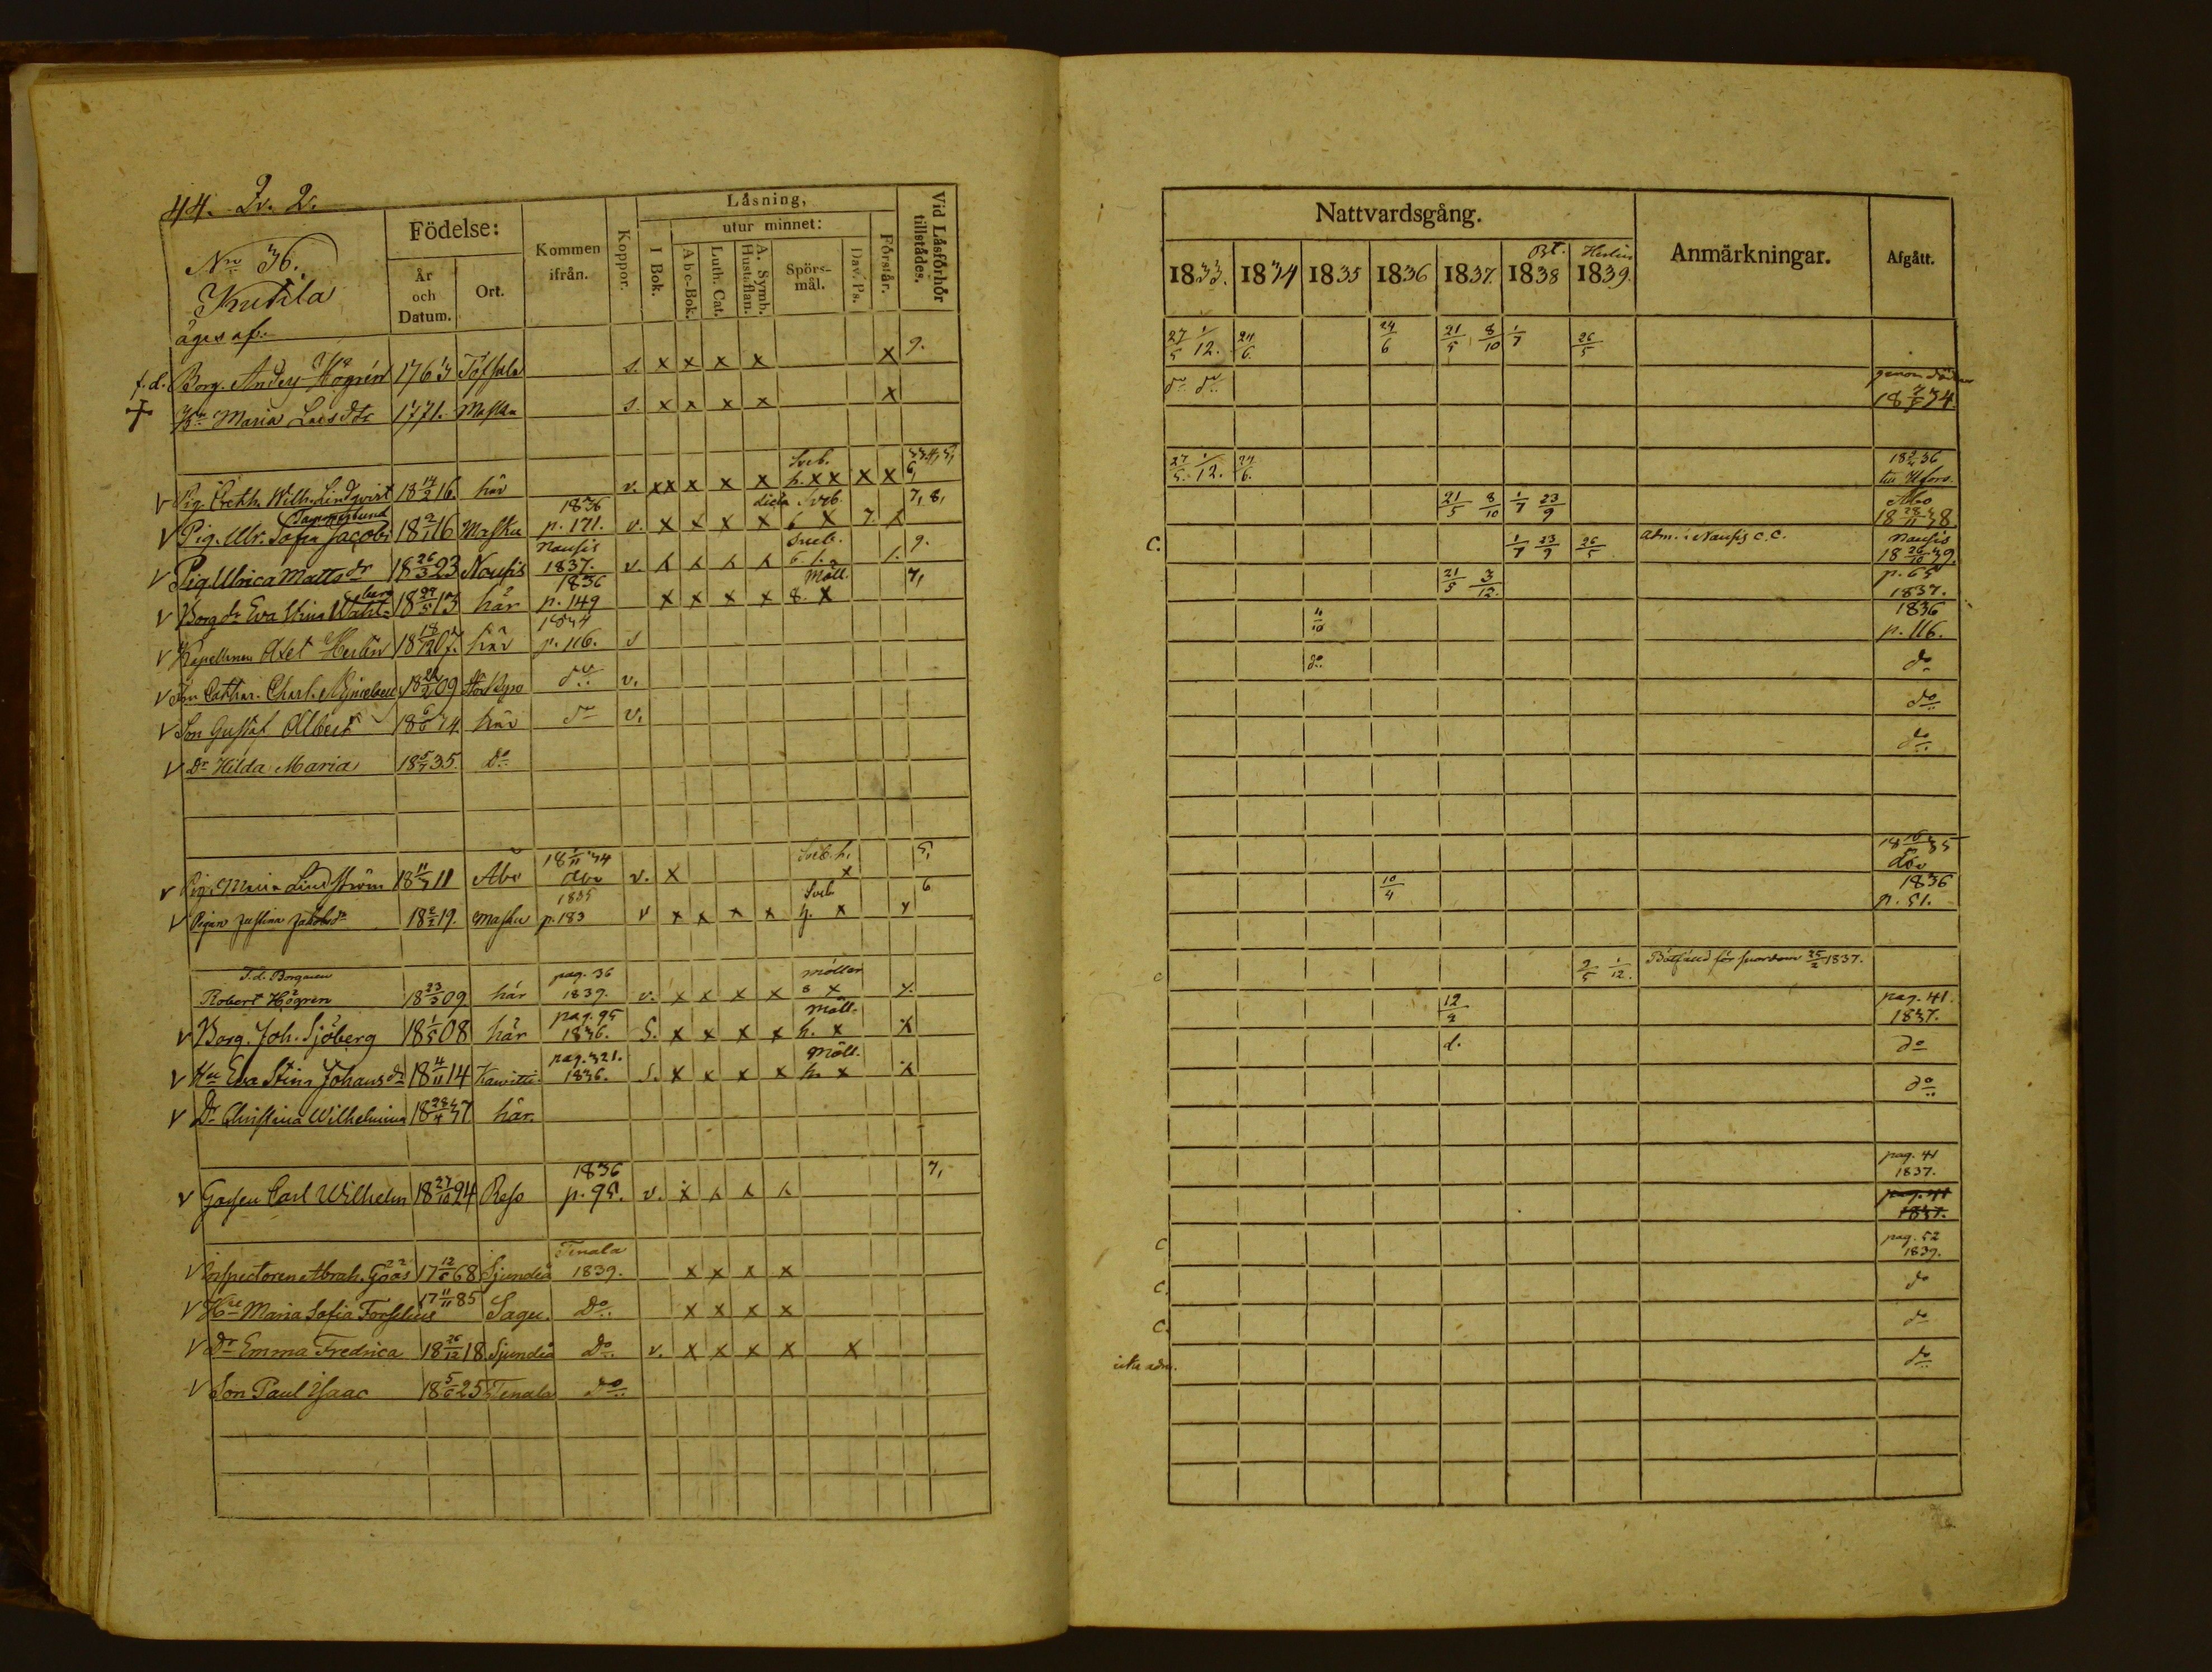 44. Qv. 2.
Nro 36.
Kutila
äges af.
Födelse:
År och Datum.
Ort.
Kommen ifrån.
Koppor.
Låsning,
I Bok.
utur minnet:
Abc-Bok.
Luth. Cat.
A. Symb. Hustaflan.
Spörs-mål.
Dav. Ps.
Förstår.
Vid Låsförhör tillstådes.
f.d. Borg. Anders Högrén 1763 Töfsala s. x x x x x 9.
Hu Maria Larsdtr 1771. Masku s. x x x x x
V Pig. Wilh. Lindqvist 18 14/2 16. här v. xx x x x Sveb. h. xx x x 3,4,5, 6,
Tammerlund
V Pig. Ulr. Sofia Jacobs 18 2/1 16 Masku 1836 p. 171. v. x x x x Sveb. 6 x 7. 7, 8,
V Pig Ulrica Mattsdr 18 26/3 23 Nousis Nousis 1837. v. Sveb. 9.
V Borgdr Eva Stina Wahlberg 18 29/5 13 här 1836 p. 149 x x x x Möll. 8. x 7,
V Kapellanen Axel Herlin 18 18/12 07. här 1834 p. 116. s
V Cathar. Charl. 18 09 Storkyro do v.
V Son Gustaf Albert 18 6/6 34. här do v.
V Dr Hilda Maria 18 5/7 35. do
V Pig. Maria Lindström 18 11/3 11 Åbo 18 1/11 34 Åbo v. x Sveb. h. x 5,
V Pigan Justina Jakobsdr 18 2/2 19. Masku 1835 p. 183 v x x x x Sveb x 6
F.d. Borgaren
Robert Högrén 18 23/3 09 här pag. 36 1839. v. x x x x Möller 8 x
V Borg. Joh. Sjöberg 18 1/5 08 här pag. 95 1836. S. x x x x Möll. h. x
V Hu Eva Stina Johansdr 18 4/11 14 pag. 321. 1836. S. x x x x Möll. h. x
V Dr Christina Wilhelmina 18 28/4 37 här.
V Gossen Carl Wilhelm 18 27/10 24 Reso 1836 p. 95. v. x 7,
V Inspectoren Abrah. Göös 17 12/6 68 Sjundeå Tenala 1839. x x x x
V Hu Maria Sofia Forselius 17 11/11 85 Sagu. Do x x x x
V Dr Emma Fredrica 18 26/12 18. Sjundeå Do v. x x x x x
V Son Paul Isaac 18 5/6 25 Tenala do
Nattvardsgång.
1833. 1834 1835 1836 1837. 1838 1839.
Herlin
Anmärkningar.
Afgått.
27/5 1/12. 24/6. 24/6 21/5 8/10 1/7 26/5
do do genom döden 18 34.
27/5. 1/12. 24/6. 18 36 till Hfors.
21/5 8/10 1/7 23/9 Åbo 18 28/11 38.
C. 1/7 23/9 26/5 adm. i Nousis c.c. Nousis 18 26/10 39.
21/5 3/12. p. 65 1837.
11/10 1836 p. 116.
do do
do
do
18 35 Åbo
10/4 1836 p. 51.
c 2/5 1/12. 25/2 1837.
12/2 pag. 41. 1837.
d. do
do
pag. 41 1837.
pag. 41 1837.
C pag. 52 1839.
C. do
C. do
icke adm. do